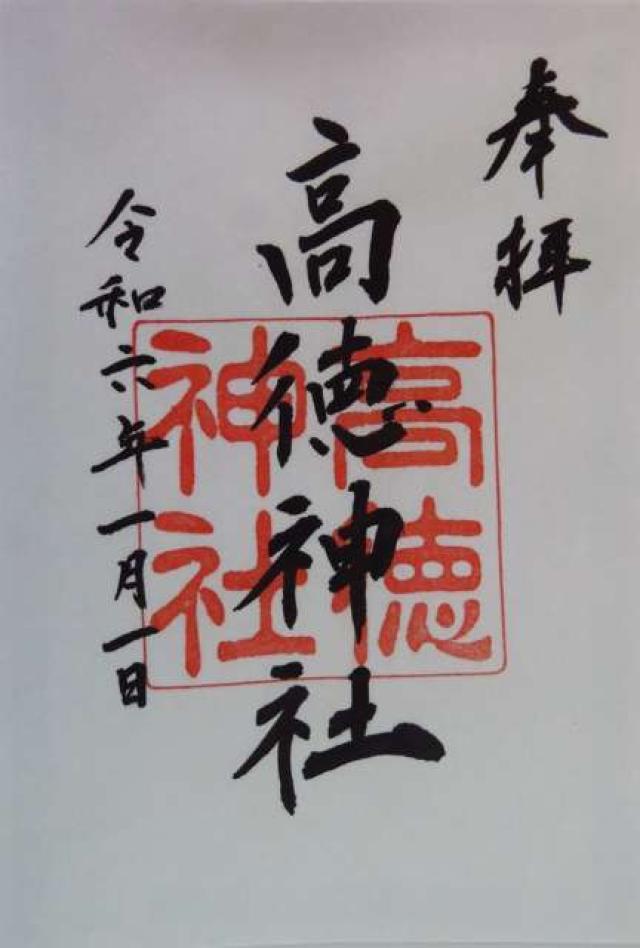 奉拝
高徳神社
高徳
神社
令和六年一月一日